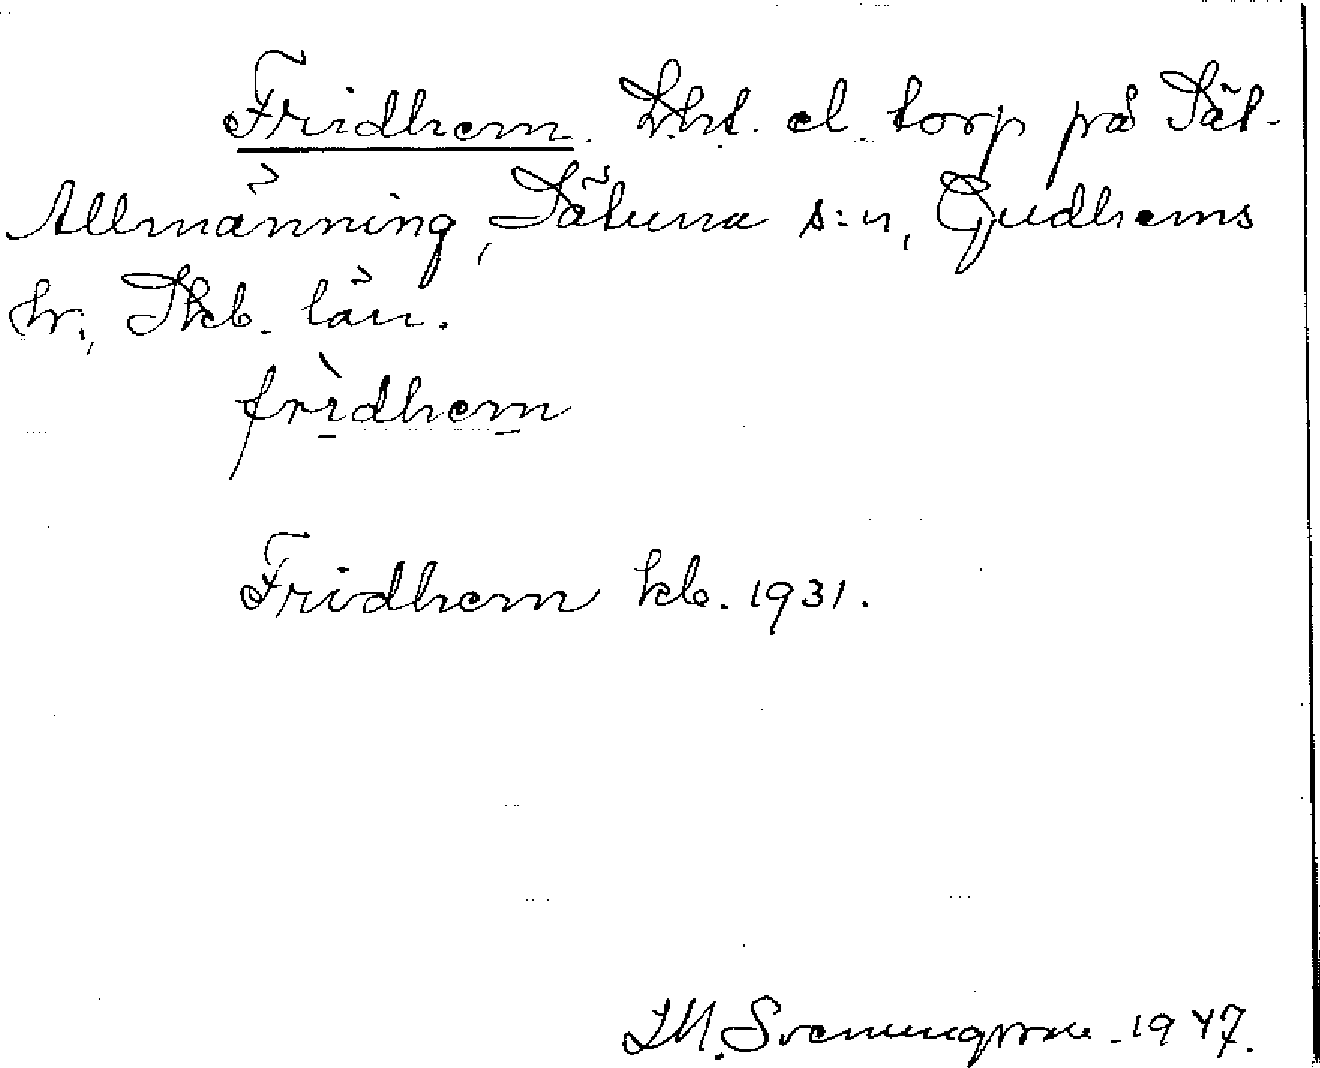 Fridhem. Lht. el. torp på Sät-
Allmänning, Sätuna s:n, Gudhems
hr., Skb. län.
frìdhem
Fridhem kb. 1931.
I.M. Svenungsson - 1947.